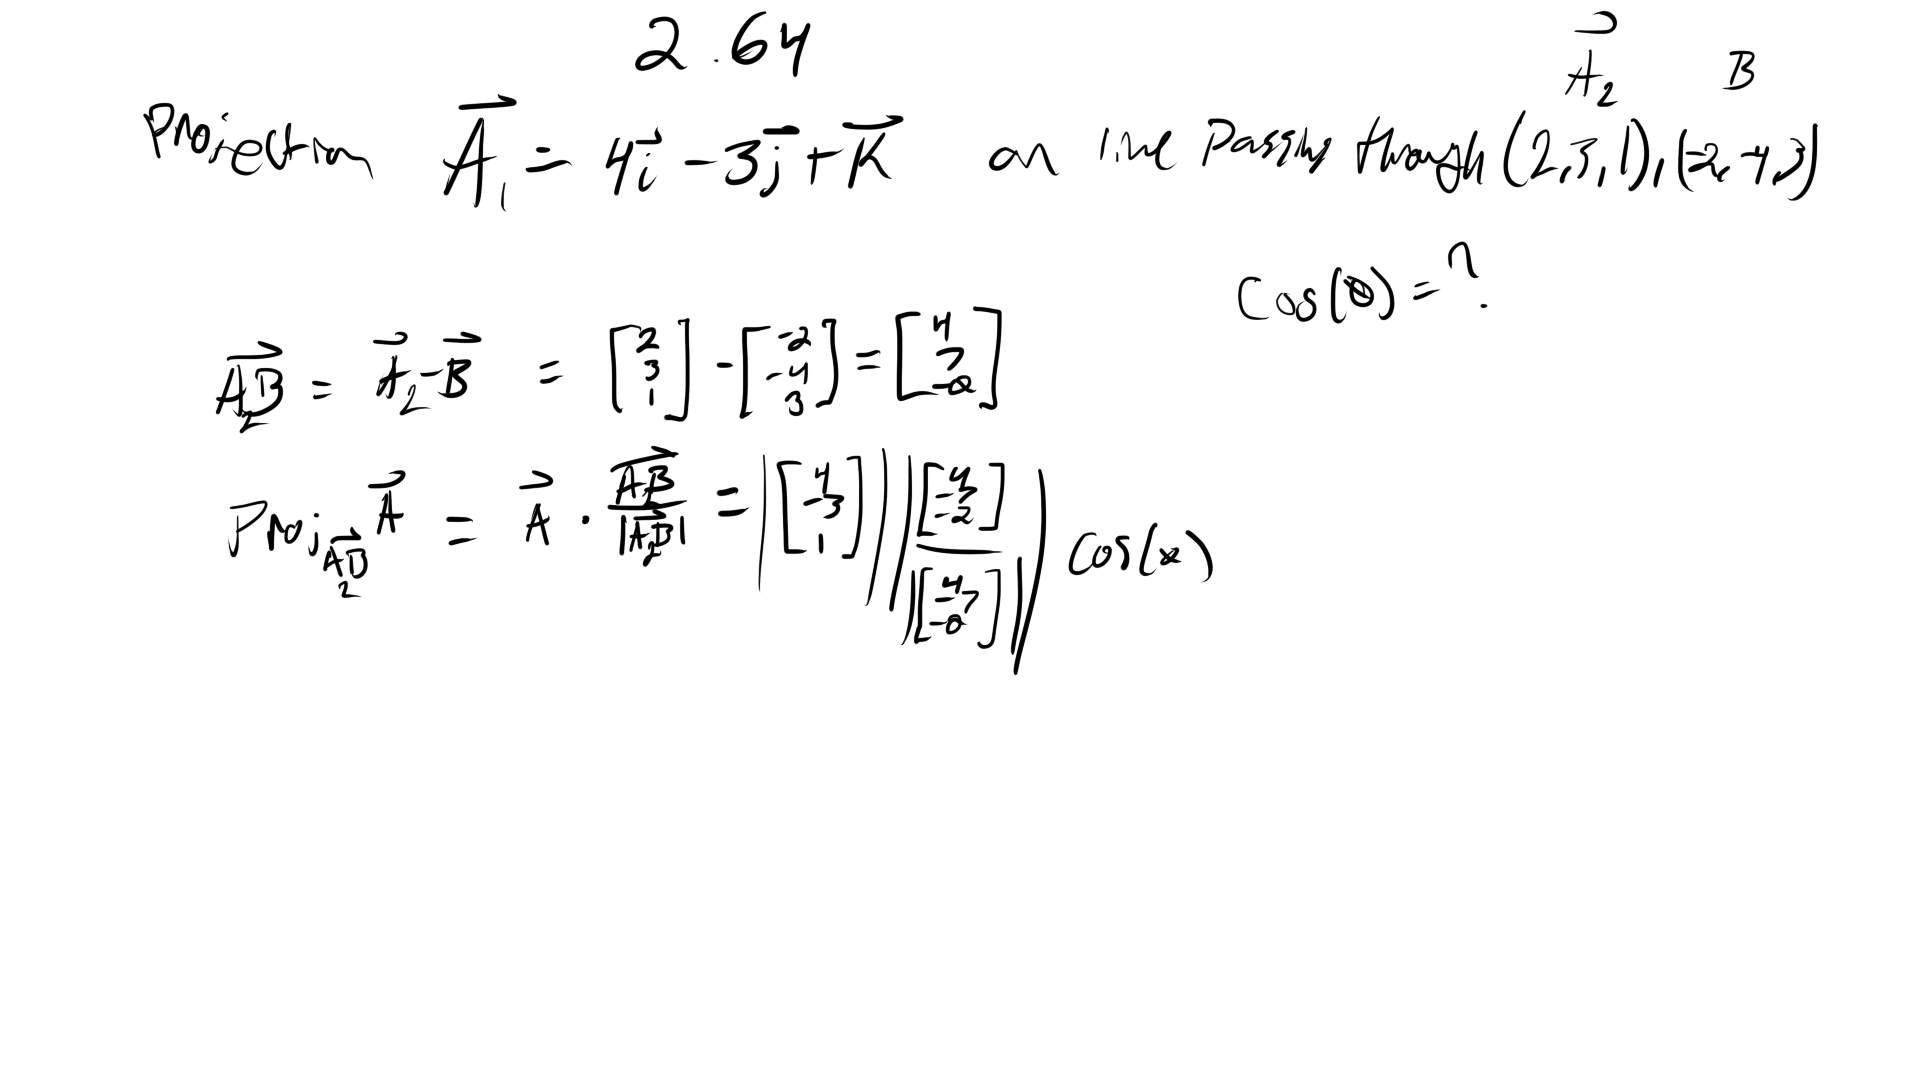 2.64
Projection A₁ = 4i - 3j + K on line Passing through (2,3,1), (-2,-4,3)
A₂ B
Cos(θ) = ?
A₂B = A₂ - B = [2 3 1] - [-2 -4 3] = [4 7 -2]
Proj A₂B A = A · A₂B / |A₂B| = |[4 -3 1]| |[4 -7 -2] / |[4 -7 -2]|| Cos(x)